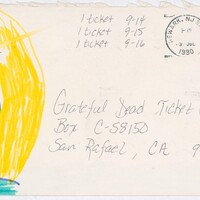 1 ticket 9-14
1 ticket 9-15
1 ticket 9-16
NEWARK, NJ
PM
1990
Grateful Dead Ticket
Box C-S8150
San Rafael, CA 9